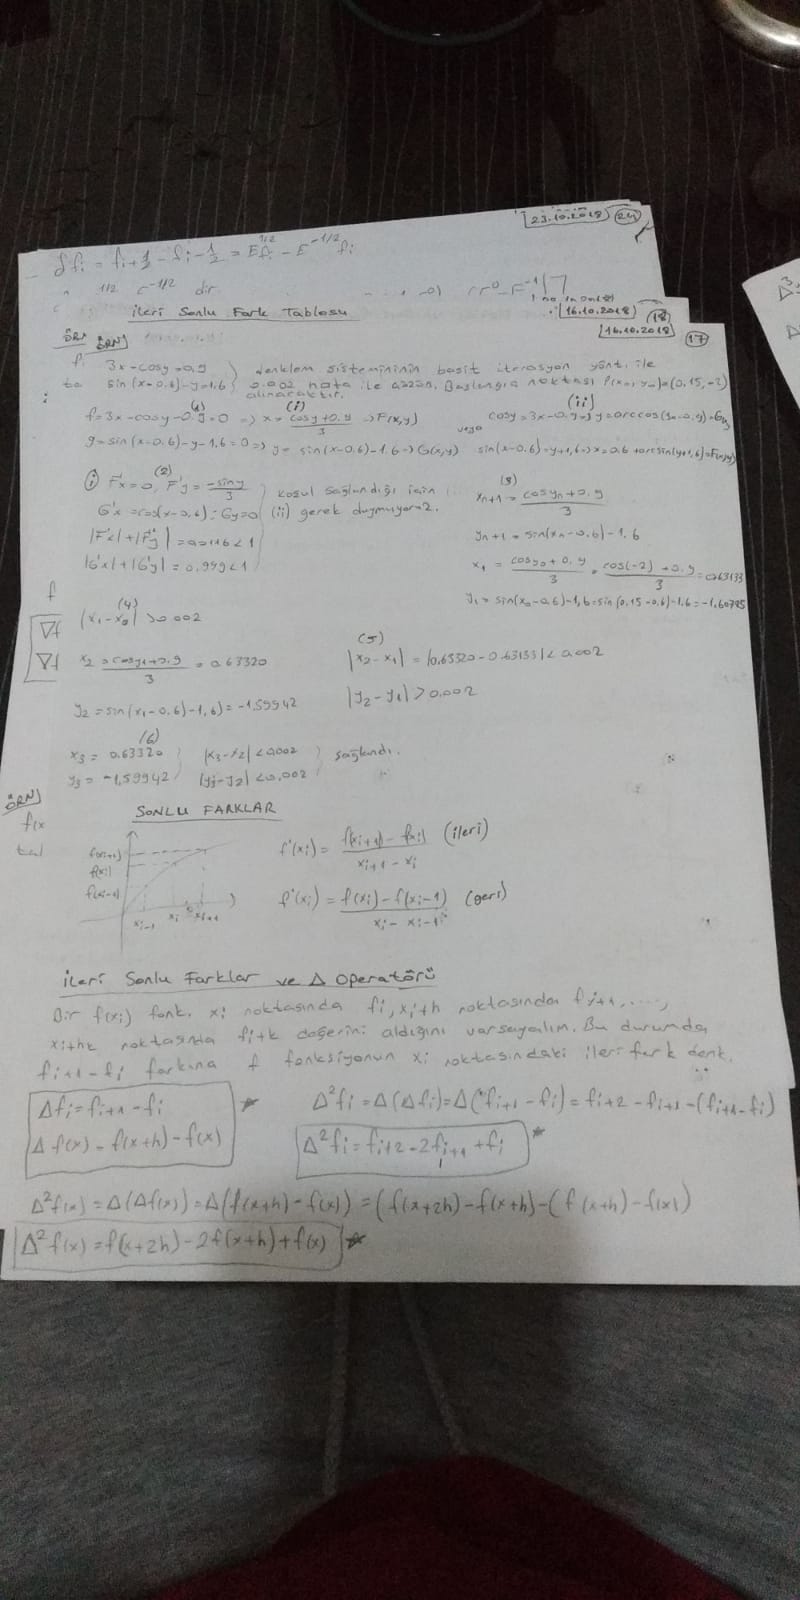 23.10.2018 24
δfi = fi+1/2 - fi-1/2 = E^1/2 fi - E^-1/2 fi
dir
İleri Sonlu Fark Tablosu
16.10.2018 18
16.10.2018 17
ÖRN ÖRN)
3x-cosy=0,9 } denklem sisteminin basit iterasyon yönt. ile
sin(x-0,6)-y=1,6 } 0.002 hata ile çözün. Başlangıç noktası P(x0,y0)=(0,15,-2)
alınacaktır.
(1) (i) (ii)
f=3x-cosy-0,9=0 => x = (cosy+0,9)/3 => F(x,y) veya cosy=3x-0,9=>y=arccos(3x-0,9)=G(x,y)
g=sin(x-0.6)-y-1,6=0=> y= sin(x-0.6)-1.6=>G(x,y) sin(x-0.6)=y+1,6=>x=0.6+arcsin(y+1,6)=F(x,y)
(2) (3)
(i) F'x=0, F'y = -siny/3 } koşul sağlandığı için xn+1 = (cosyn+0,9)/3
G'x=cos(x-0,6); G'y=0 } (ii) gerek duymuyoruz.
|F'x|+|F'y| <1 yn+1 = sin(xn-0.6)-1.6
|G'x|+|G'y| = 0.999<1 x1 = (cosy0+0,9)/3 = (cos(-2)+0,9)/3 =0.63133
y1 = sin(x0-0.6)-1,6=sin(0,15-0.6)-1.6=-1.60785
(4)
∇f |x1-x0| >0.002
(5)
∇f x2 = (cosy1+0.9)/3 = 0.63320 |x2-x1| = |0.63320-0.63133|<0.002
y2=sin(x1-0.6)-1,6)=-1,59942 |y2-y1|>0,002
(6)
x3 = 0.63320 } |x3-x2|<0.002 } sağlandı.
y3 = -1,59942 } |y3-y2|<0,002
ÖRN)
SONLU FARKLAR
f(x
f(xi+1)
f(xi)
f(xi-1)
xi-1 xi xi+1
f'(xi) = (f(xi+1)-f(xi))/(xi+1-xi) (ileri)
f'(xi) = (f(xi)-f(xi-1))/(xi-xi-1) (geri)
İleri Sonlu Farklar ve Δ Operatörü
Bir f(xi) fonk. xi noktasında fi, xi+h noktasında fi+1,....,
xi+hk noktasında fi+k değerini aldığını varsayalım. Bu durumda
fi+1-fi farkına f fonksiyonun xi noktasındaki ileri fark denk.
Δfi=fi+1-fi ★ Δ²fi=Δ(Δfi)=Δ(fi+1-fi)=fi+2-fi+1-(fi+1-fi)
Δf(x)=f(x+h)-f(x) Δ²fi=fi+2-2fi+1+fi ★
Δ²f(x)=Δ(Δf(x))=Δ(f(x+h)-f(x))=(f(x+2h)-f(x+h)-(f(x+h)-f(x))
Δ²f(x)=f(x+2h)-2f(x+h)+f(x) ★